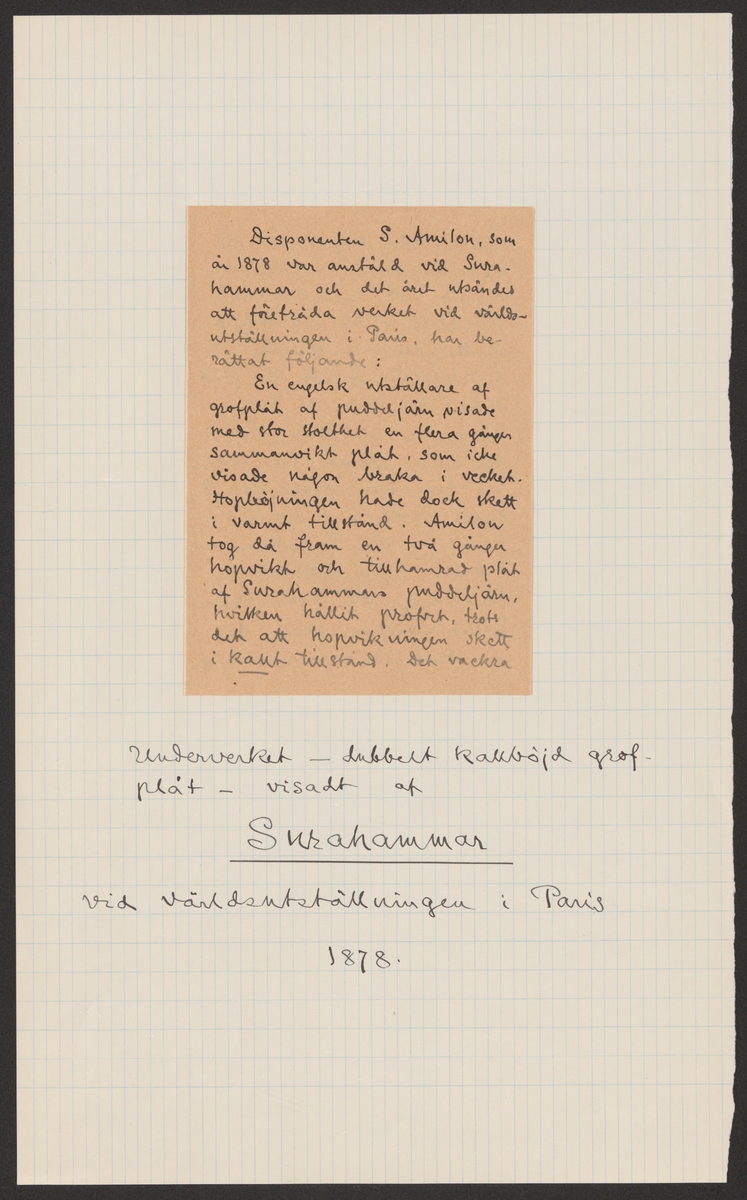 Disponenten S. Amilon, som
år 1878 var anstäld vid Sura-
hammar och det året utsändes
att företräda verket vid världs-
utställningen i Paris, har be-
rättat följande:
En engelsk utställare af
grofplåt af puddeljärn visade
med stor stolthet en flera gånger
sammanvikt plåt, som icke
visade någon bräka i vecket.
Hopböjningen hade dock skett
i varmt tillstånd. Amilon
tog då fram en två gånger
hopvikt och tillhamrad plåt
af Surahammars puddeljärn,
hvilken hållit profvet, trots
det att hopvikningen skett
i kallt tillstånd. Det vackra
Underverket – dubbelt kallböjd grof-
plåt – visadt af
Surahammar
vid världsutställningen i Paris
1878.